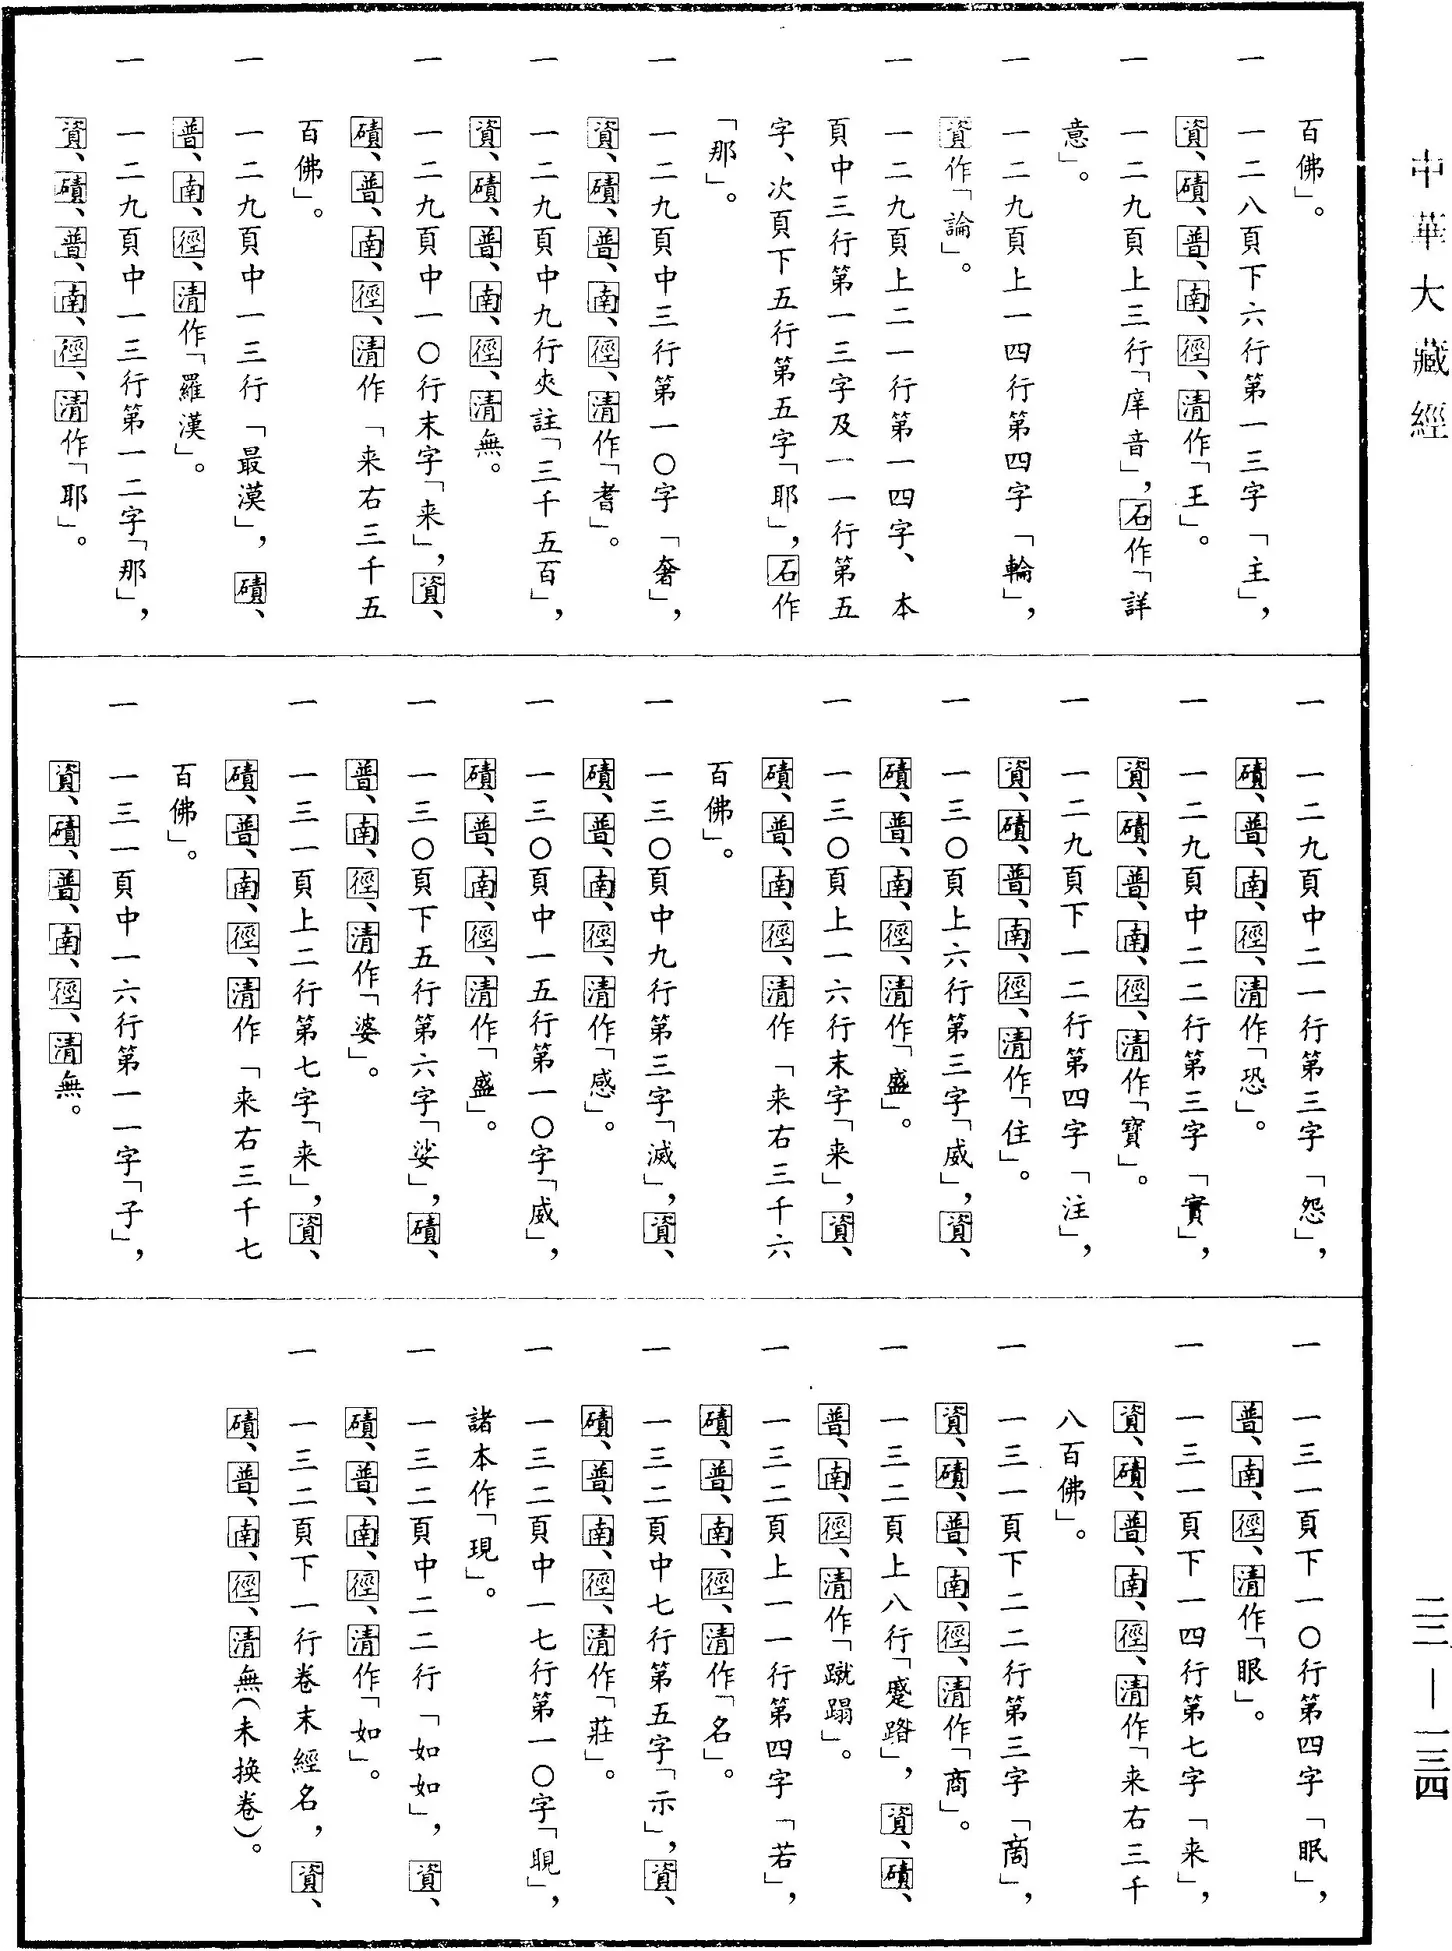 中華大藏經
百佛」。
一 一二八頁下六行第一三字「主」，
資、磧、普、南、徑、清作「王」。
一 一二九頁上三行「庠音」，石作「詳
意」。
一 一二九頁上一四行第四字「輪」，
資作「論」。
一 一二九頁上二一行第一四字、本
頁中三行第一三字及一一行第五
字、次頁下五行第五字「耶」，石作
「那」。
一 一二九頁中三行第一〇字「奢」，
資、磧、普、南、徑、清作「耆」。
一 一二九頁中九行夾註「三千五百」，
資、磧、普、南、徑、清無。
一 一二九頁中一〇行末字「来」，資、
磧、普、南、徑、清作「来右三千五
百佛」。
一 一二九頁中一三行「最漠」，磧、
普、南、徑、清作「羅漢」。
一 一二九頁中一三行第一二字「那」，
資、磧、普、南、徑、清作「耶」。
一 一二九頁中二一行第三字「怨」，
磧、普、南、徑、清作「恐」。
一 一二九頁中二二行第三字「實」，
資、磧、普、南、徑、清作「寶」。
一 一二九頁下一二行第四字「注」，
資、磧、普、南、徑、清作「住」。
一 一三〇頁上六行第三字「威」，資、
磧、普、南、徑、清作「盛」。
一 一三〇頁上一六行末字「来」，資、
磧、普、南、徑、清作「来右三千六
百佛」。
一 一三〇頁中九行第三字「滅」，資、
磧、普、南、徑、清作「感」。
一 一三〇頁中一五行第一〇字「威」，
磧、普、南、徑、清作「盛」。
一 一三〇頁下五行第六字「娑」，磧、
普、南、徑、清作「婆」。
一 一三一頁上二行第七字「来」，資、
磧、普、南、徑、清作「来右三千七
百佛」。
一 一三一頁中一六行第一一字「子」，
資、磧、普、南、徑、清無。
一 一三一頁下一〇行第四字「眠」，
普、南、徑、清作「眼」。
一 一三一頁下一四行第七字「来」，
資、磧、普、南、徑、清作「来右三千
八百佛」。
一 一三一頁下二二行第三字「啇」，
資、磧、普、南、徑、清作「商」。
一 一三二頁上八行「蹙踏」，資、磧、
普、南、徑、清作「蹴蹋」。
一 一三二頁上一一行第四字「若」，
磧、普、南、徑、清作「名」。
一 一三二頁中七行第五字「示」，資、
磧、普、南、徑、清作「莊」。
一 一三二頁中一七行第一〇字「睍」，
諸本作「現」。
一 一三二頁中二二行「如如」，資、
磧、普、南、徑、清作「如」。
一 一三二頁下一行卷末經名，資、
磧、普、南、徑、清無（未換卷）。
二二—一三四